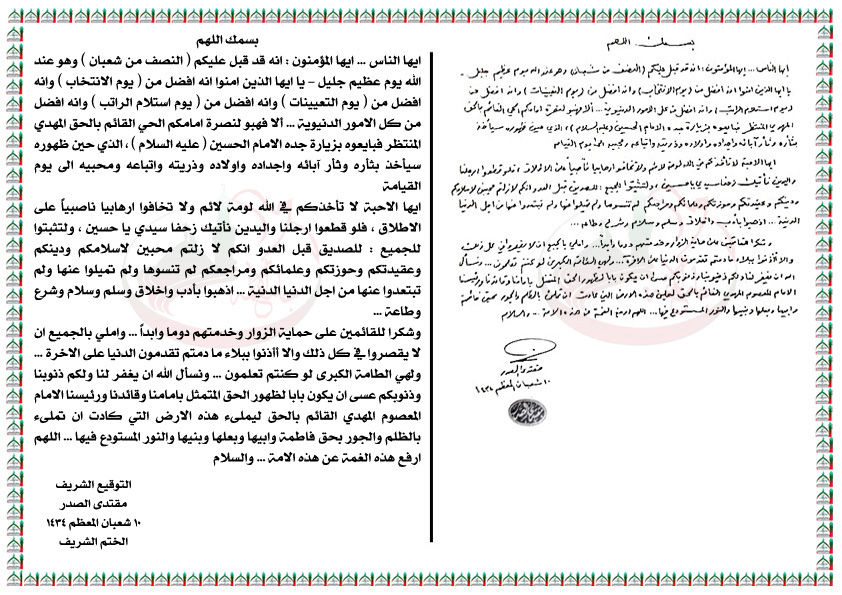 بسمك اللهم
ايها الناس ... ايها المؤمنون : انه قد قبل عليكم (النصف من شعبان) وهو عند الله يوم عظيم جليل -
يا ايها الذين امنوا انه افضل من (يوم الانتخاب) وانه افضل من (يوم التعيينات) وانه افضل من
(يوم استلام الراتب) وانه افضل من كل الامور الدنيوية ... ألا فهبو لنصرة امامكم الحي القائم بالحق
المهدي المنتظر فبايعوه بزيارة جده الامام الحسين (عليه السلام) ، الذي حين ظهوره سيأخذ
بثأره وثأر آبائه واجداده واولاده وذريته واتباعه ومحبيه الى يوم القيامة
ايها الاحبة لا تأخذكم في الله لومة لائم ولا تخافوا ارهابيا ناصبياً على الاطلاق ، فلو قطعوا ارجلنا
واليدين نأتيك زحفا سيدي يا حسين ، ولتثبتوا للجميع : للصديق قبل العدو انكم لا زلتم محبين لاسلامكم
ودينكم وعقيدتكم وحوزتكم وعلمائكم ومراجعكم لم تنسوها ولم تميلوا عنها ولم تبتعدوا عنها من اجل الدنيا
الدنية ... اذهبوا بأدب واخلاق وسلم وسلام وشرع وطاعة ...
وشكرا للقائمين على حماية الزوار وخدمتهم دوما وابداً ... واملي بالجميع ان لا يقصروا في كل ذلك
والا أأذنوا ببلاء ما دمتم تقدمون الدنيا على الاخرة ... ولهي الطامة الكبرى لو كنتم تعلمون ... ونسأل
الله ان يغفر لنا ولكم ذنوبنا وذنوبكم عسى ان يكون بابا لظهور الحق المتمثل بامامنا وقائدنا ورئيسنا
الامام المعصوم المهدي القائم بالحق ليملىء هذه الارض التي كادت ان تملىء بالظلم والجور بحق فاطمة
وابيها وبعلها وبنيها والنور المستودع فيها ... اللهم ارفع هذه الغمة عن هذه الامة ... والسلام
مقتدى الصدر
١٠ شعبان المعظم ١٤٣٤
بسمك اللهم
ايها الناس ... ايها المؤمنون : انه قد قبل عليكم ( النصف من شعبان ) وهو عند
الله يوم عظيم جليل – يا ايها الذين امنوا انه افضل من ( يوم الانتخاب ) وانه
افضل من ( يوم التعيينات ) وانه افضل من ( يوم استلام الراتب ) وانه افضل
من كل الامور الدنيوية ... ألا فهبو لنصرة امامكم الحي القائم بالحق المهدي
المنتظر فبايعوه بزيارة جده الامام الحسين ( عليه السلام ) ، الذي حين ظهوره
سيأخذ بثأره وثأر آبائه واجداده واولاده وذريته واتباعه ومحبيه الى يوم
القيامة
ايها الاحبة لا تأخذكم في الله لومة لائم ولا تخافوا ارهابيا ناصبياً على
الاطلاق ، فلو قطعوا ارجلنا واليدين نأتيك زحفا سيدي يا حسين ، ولتثبتوا
للجميع : للصديق قبل العدو انكم لا زلتم محبين لاسلامكم ودينكم
وعقيدتكم وحوزتكم وعلمائكم ومراجعكم لم تنسوها ولم تميلوا عنها ولم
تبتعدوا عنها من اجل الدنيا الدنية ... اذهبوا بأدب واخلاق وسلم وسلام وشرع
وطاعة ...
وشكرا للقائمين على حماية الزوار وخدمتهم دوما وابداً ... واملي بالجميع ان
لا يقصروا في كل ذلك والا أأذنوا ببلاء ما دمتم تقدمون الدنيا على الاخرة ...
ولهي الطامة الكبرى لو كنتم تعلمون ... ونسأل الله ان يغفر لنا ولكم ذنوبنا
وذنوبكم عسى ان يكون بابا لظهور الحق المتمثل بامامنا وقائدنا ورئيسنا الامام
المعصوم المهدي القائم بالحق ليملىء هذه الارض التي كادت ان تملىء
بالظلم والجور بحق فاطمة وابيها وبعلها وبنيها والنور المستودع فيها ... اللهم
ارفع هذه الغمة عن هذه الامة ... والسلام
التوقيع الشريف
مقتدى الصدر
١٠ شعبان المعظم ١٤٣٤
الختم الشريف